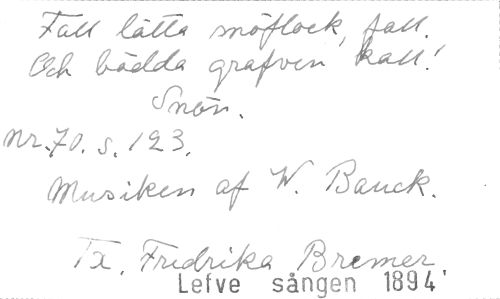 Fall lätta snöflock, fall.
Och bädda grafven kall!
Snön.
Nr. 70. s. 123.
Musiken af W. Bauck.
Tx. Fredrika Bremer
Lefve sången 1894.